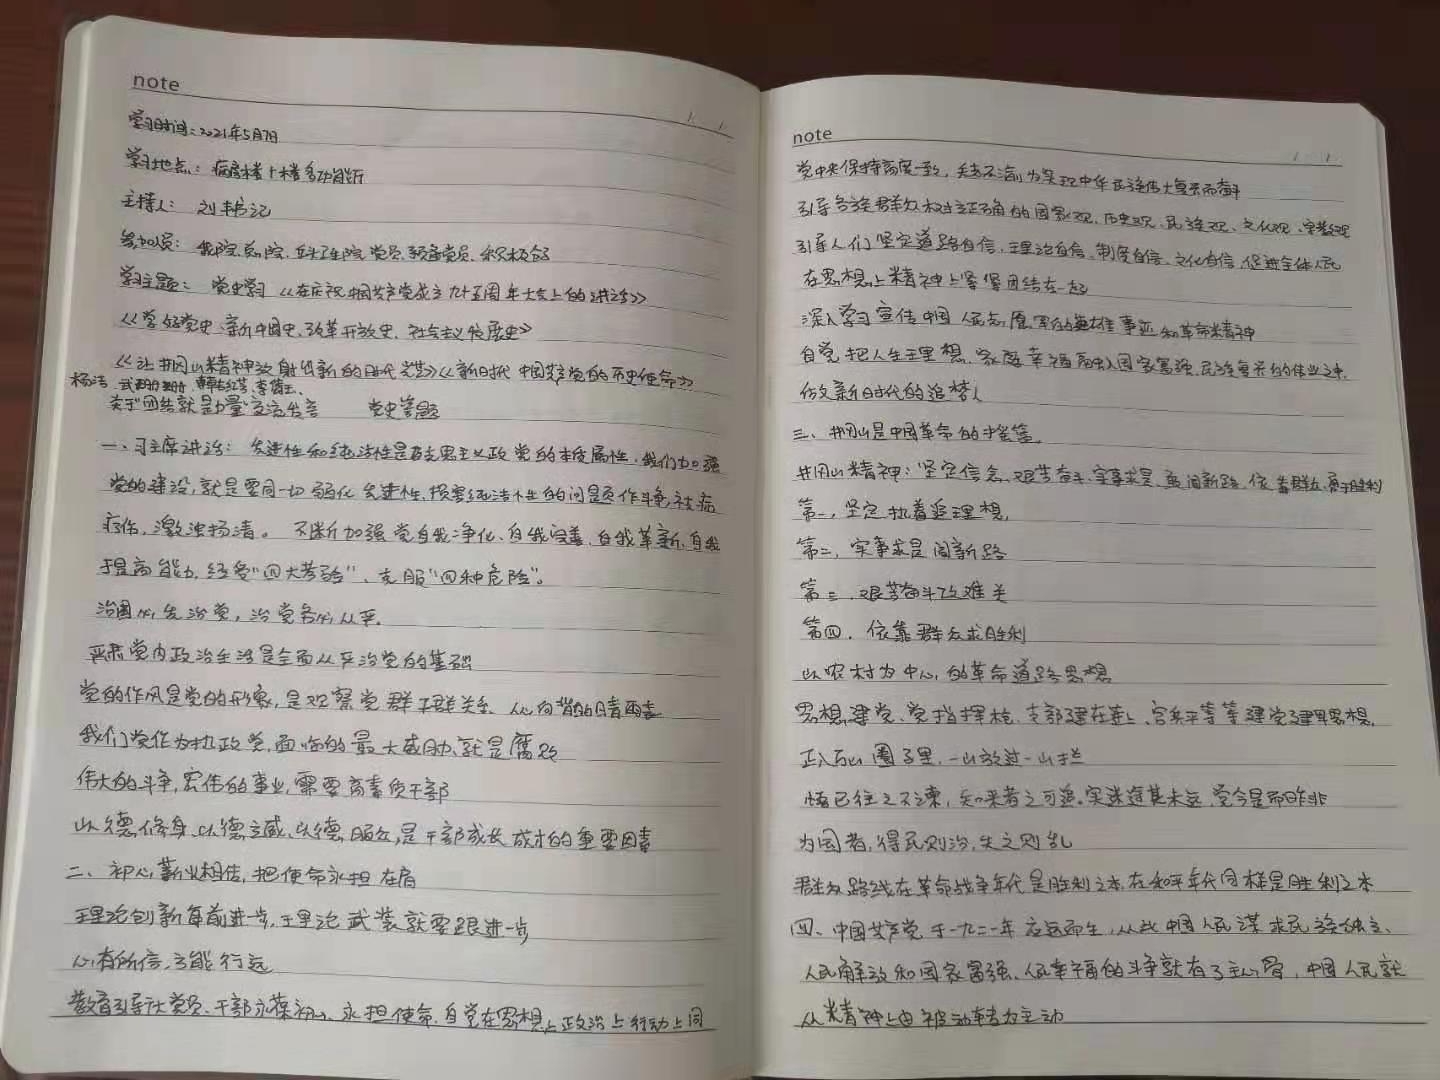 note
学习时间:2021年5月7日
学习地点:病房楼十楼多功能厅
主持人:刘书记
参加人员:我院、总院、卫生院党员、预备党员、积极分子
学习主题:党史学习《在庆祝中国共产党成立九十五周年大会上的讲话》
《学好党史、新中国史、改革开放史、社会主义发展史》
《让井冈山精神放射出新的时代光芒》《新时代中国共产党的历史使命》
杨洁、
关于“团结就是力量”交流发言 党史答题
一、习主席讲话:先进性和纯洁性是马克思主义政党的本质属性,我们加强
党的建设,就是要同一切弱化先进性、损害纯洁性的问题作斗争,祛病
疗伤,激浊扬清。不断加强党自我净化、自我完善、自我革新、自我
提高能力,经受“四大考验”、克服“四种危险”。
治国必先治党,治党务必从严。
严肃党内政治生活是全面从严治党的基础
党的作风是党的形象,是观察党群干群关系、人心向背的晴雨表
我们党作为执政党,面临的最大威胁就是腐败
伟大的斗争,宏伟的事业,需要高素质干部
以德修身、以德立威、以德服众,是干部成长成才的重要因素
二、初心薪火相传,把使命永担在肩
理论创新每前进一步,理论武装就要跟进一步
心有所信,方能行远
教育引导广大党员、干部永葆初心、永担使命,自觉在思想上政治上行动上同
note
党中央保持高度一致,矢志不渝为实现中华民族伟大复兴而奋斗
引导各族群众树立正确的国家观、历史观、民族观、文化观、宗教观
引导人们坚定道路自信、理论自信、制度自信、文化自信,促进全体人民
在思想上精神上紧紧团结在一起
深入学习宣传中国人民志愿军的英雄事迹和革命精神
自觉把人生理想、家庭幸福融入国家富强、民族复兴的伟业之中,
做新时代的追梦人
三、井冈山是中国革命的摇篮。
井冈山精神:坚定信念、艰苦奋斗、实事求是、敢闯新路、依靠群众、勇于胜利
第一,坚定执着追理想,
第二,实事求是闯新路
第三,艰苦奋斗攻难关
第四,依靠群众求胜利
以农村为中心的革命道路思想
思想建党、党指挥枪、支部建在连上、官兵平等等建党建军思想,
正入万山圈子里,一山放过一山拦
悟已往之不谏,知来者之可追。实迷途其未远,觉今是而昨非
为国者,得民则治,失之则乱
群众路线在革命战争年代是胜利之本,在和平年代同样是胜利之本
四、中国共产党于一九二一年应运而生,从此中国人民谋求民族独立、
人民解放和国家富强、人民幸福的斗争就有了主心骨,中国人民就
从精神上由被动转为主动